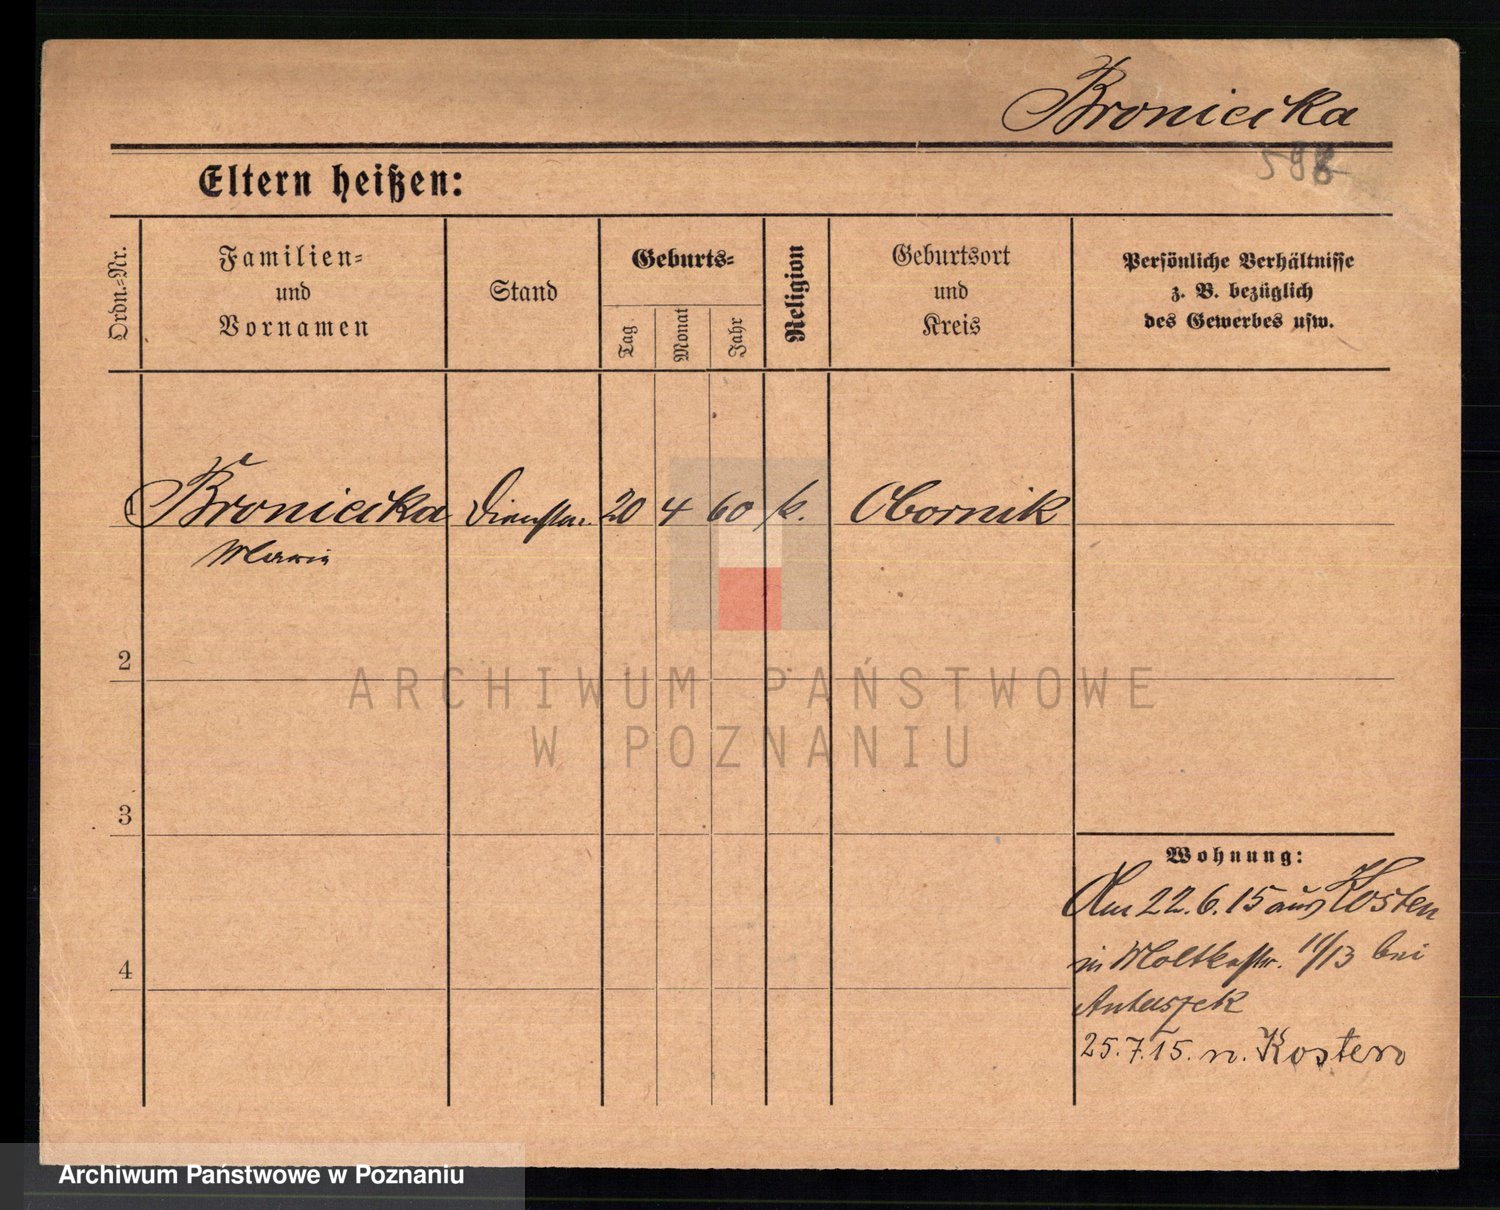 Broniecka
598
Eltern heißen:
Ordn.-Nr.
Familien-
und
Vornamen
Stand
Geburts-
Tag
Monat
Jahr
Religion
Geburtsort
und
Kreis
Persönliche Verhältnisse
z. B. bezüglich
des Gewerbes usw.
Broniecka
20 4 60 k. Obornik
Maria
2
ARCHIWUM PAŃSTWOWE
W POZNANIU
3
Wohnung:
Am 22.6.15 aus Kosten
in Moltkestr. 11/13 bei
4
25.7.15. n. Kosten
Archiwum Państwowe w Poznaniu